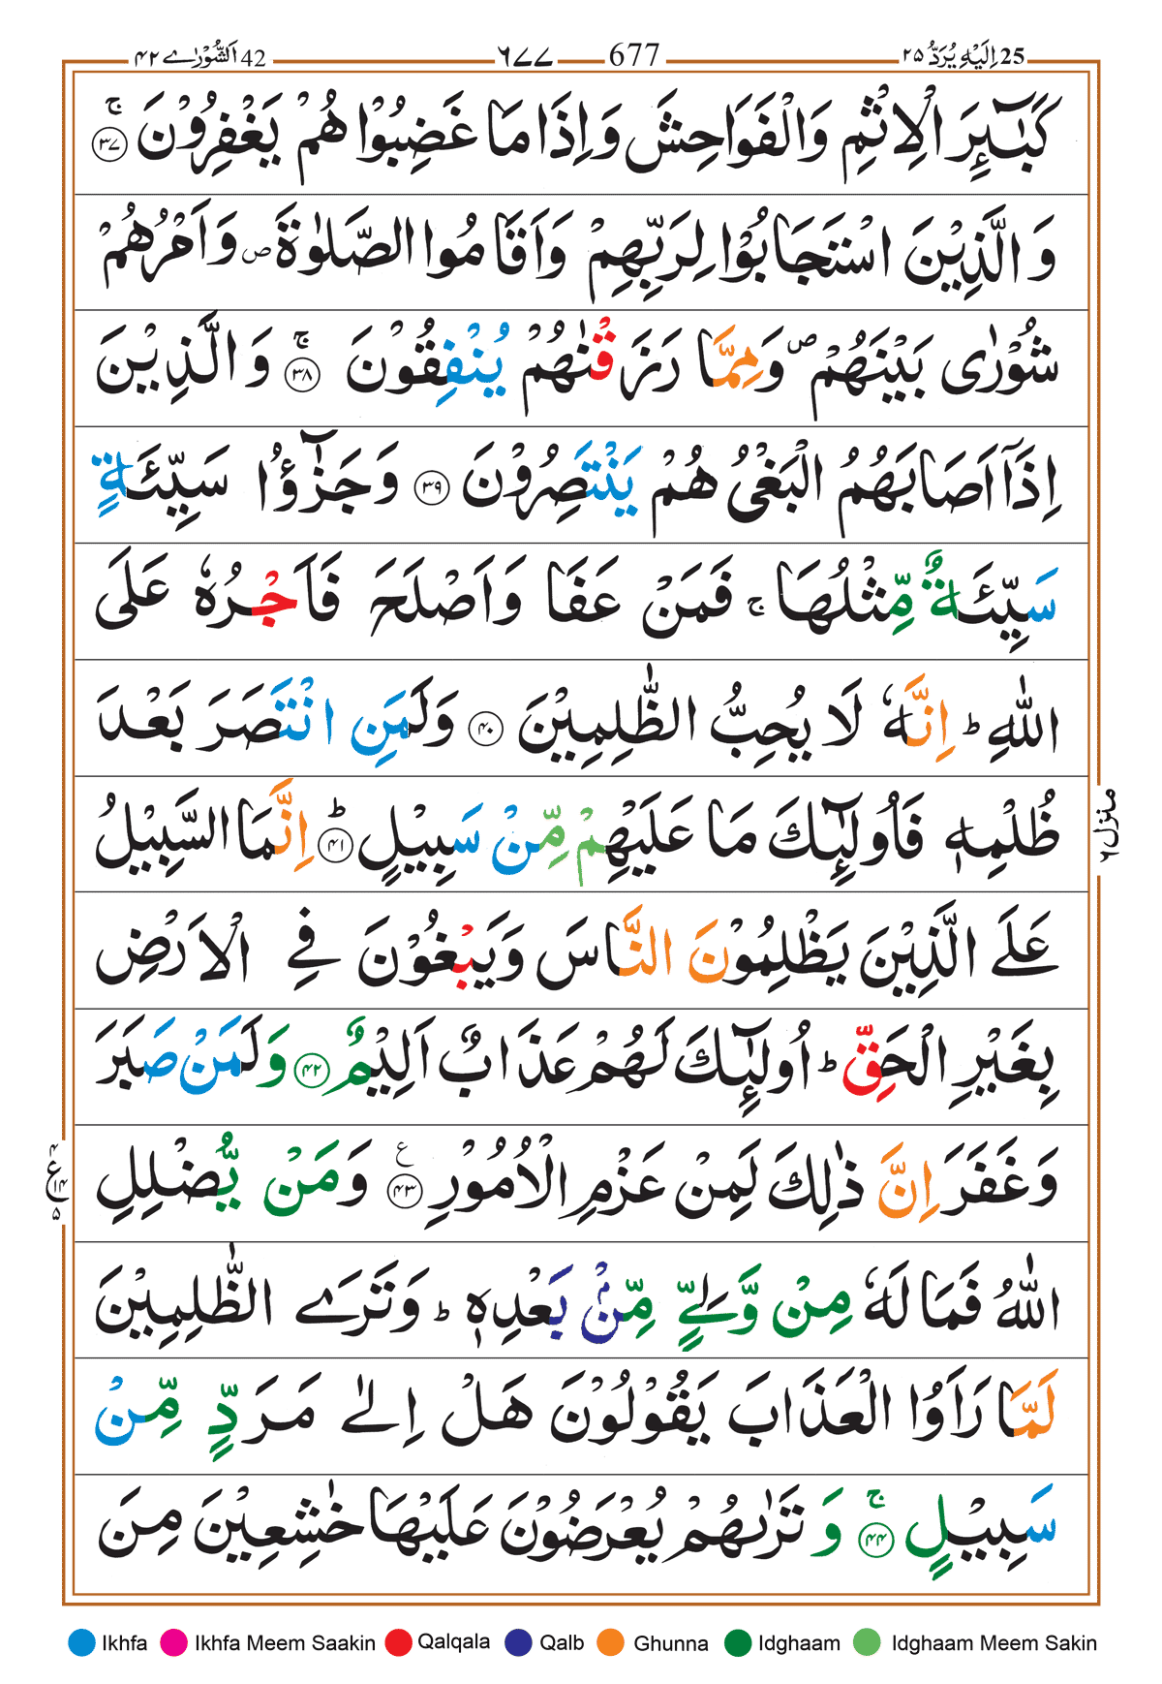 25 اِلَيْهِ يُرَدُّ ۲۵ 677 ٦٧٧ 42 اَلشُّوْرٰے ۴۲
كَبٰٓئِرَ الْاِثْمِ وَالْفَوَاحِشَ وَاِذَا مَا غَضِبُوْا هُمْ يَغْفِرُوْنَ ۚ ﴿۳۷﴾
وَالَّذِيْنَ اسْتَجَابُوْا لِرَبِّهِمْ وَاَقَامُوا الصَّلٰوةَ ۖ وَاَمْرُهُمْ
شُوْرٰى بَيْنَهُمْ ۖ وَمِمَّا رَزَقْنٰهُمْ يُنْفِقُوْنَ ۚ ﴿۳۸﴾ وَالَّذِيْنَ
اِذَاۤ اَصَابَهُمُ الْبَغْىُ هُمْ يَنْتَصِرُوْنَ ﴿۳۹﴾ وَجَزٰٓؤُا سَيِّئَةٍ
سَيِّئَةٌ مِّثْلُهَا ۚ فَمَنْ عَفَا وَاَصْلَحَ فَاَجْرُهٗ عَلَى
اللّٰهِ ؕ اِنَّهٗ لَا يُحِبُّ الظّٰلِمِيْنَ ﴿۴۰﴾ وَلَمَنِ انْتَصَرَ بَعْدَ
ظُلْمِهٖ فَاُولٰٓئِكَ مَا عَلَيْهِمْ مِّنْ سَبِيْلٍ ؕ ﴿۴۱﴾ اِنَّمَا السَّبِيْلُ
عَلَى الَّذِيْنَ يَظْلِمُوْنَ النَّاسَ وَيَبْغُوْنَ فِى الْاَرْضِ
بِغَيْرِ الْحَقِّ ؕ اُولٰٓئِكَ لَهُمْ عَذَابٌ اَلِيْمٌ ﴿۴۲﴾ وَلَمَنْ صَبَرَ
وَغَفَرَ اِنَّ ذٰلِكَ لَمِنْ عَزْمِ الْاُمُوْرِ ﴿۴۳﴾ ع وَمَنْ يُّضْلِلِ
اللّٰهُ فَمَا لَهٗ مِنْ وَّلِىٍّ مِّنْۢ بَعْدِهٖ ؕ وَتَرَى الظّٰلِمِيْنَ
لَمَّا رَاَوُا الْعَذَابَ يَقُوْلُوْنَ هَلْ اِلٰى مَرَدٍّ مِّنْ
سَبِيْلٍ ۚ ﴿۴۴﴾ وَتَرٰىهُمْ يُعْرَضُوْنَ عَلَيْهَا خٰشِعِيْنَ مِنَ
منزل ٦
ع ۴ ۱۴ ۵
Ikhfa Ikhfa Meem Saakin Qalqala Qalb Ghunna Idghaam Idghaam Meem Sakin